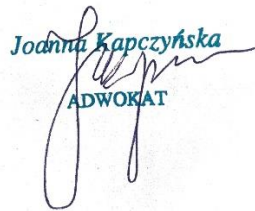 Joanna Kapczyńska
ADWOKAT